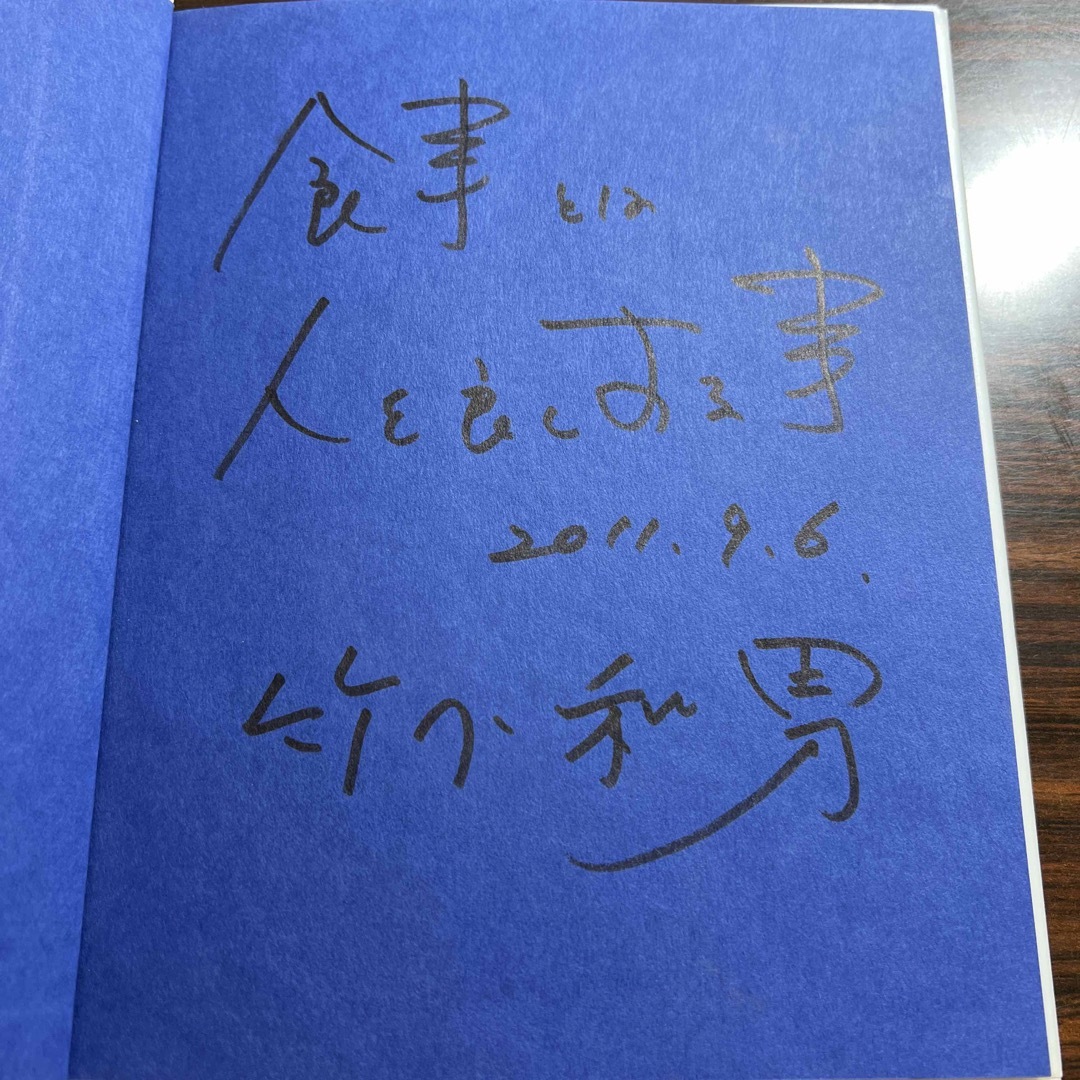 食事とは
人を良くする事
2011.9.6.
竹下和男